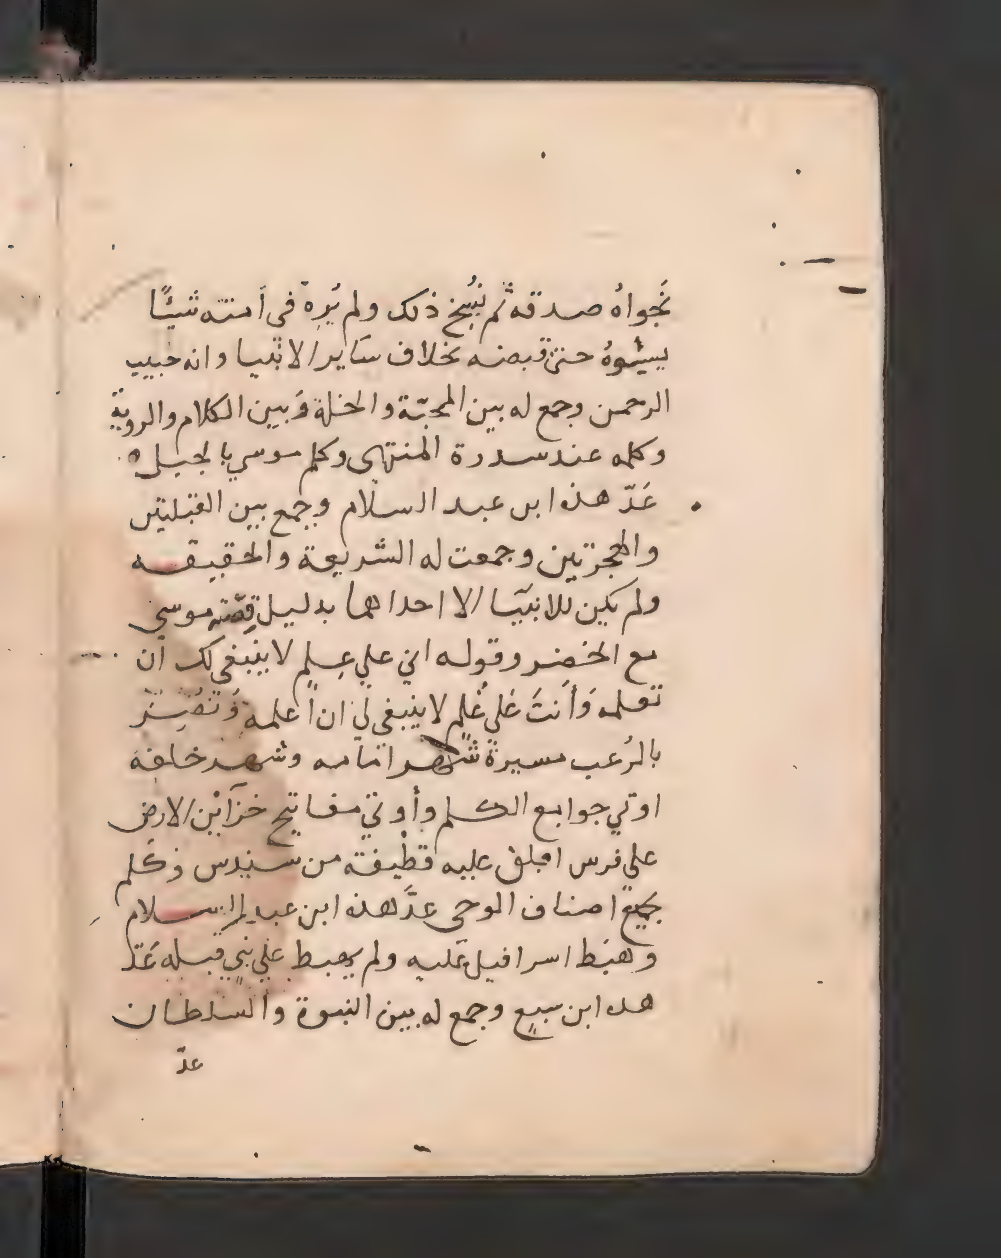 نجواهُ صدقة ثم نُسِخ ذلك ولم يُرِهْ فى اَمته شيئًا
يسُوهُ حتى قبضه بخلاف ساير الانبيا وانه حبيب
الرحمن وجمع له بين المحبّة والخلة وَبين الكلام والروية
وكلمه عند سدرة المنتهى وكلم موسي بالجبل
عَدّ هذه ابن عبد السلام وجمع بين القبلتين
والهجرتين وجمعت له الشريعة والحقيقه
ولم يكن للانبيَا الا احداهما بدليل قصّة موسي
مع الخضِر وقوله اني علي عِلمٍ لا ينبغي لك أن
تعلمه وَأنتَ عَلي عِلم لا ينبغي لي ان أعلمه وَنُصِرَ
بالرُعب مسيرة شهر امامه وشهر خلفه
اوتي جوامع الكلم وأوتي مفاتيح خزَاين الارض
علي فرس ابلق عليه قطيفة من سندس وكَلم
بجميع اصناف الوحى عدَّ هذه ابن عبد السلام
وهبَط اسرافيل عَليه ولم يهبط علي نبي قبله عَدّ
هذه ابن سبع وجمع له بين النبوة والسلطان
عدّ